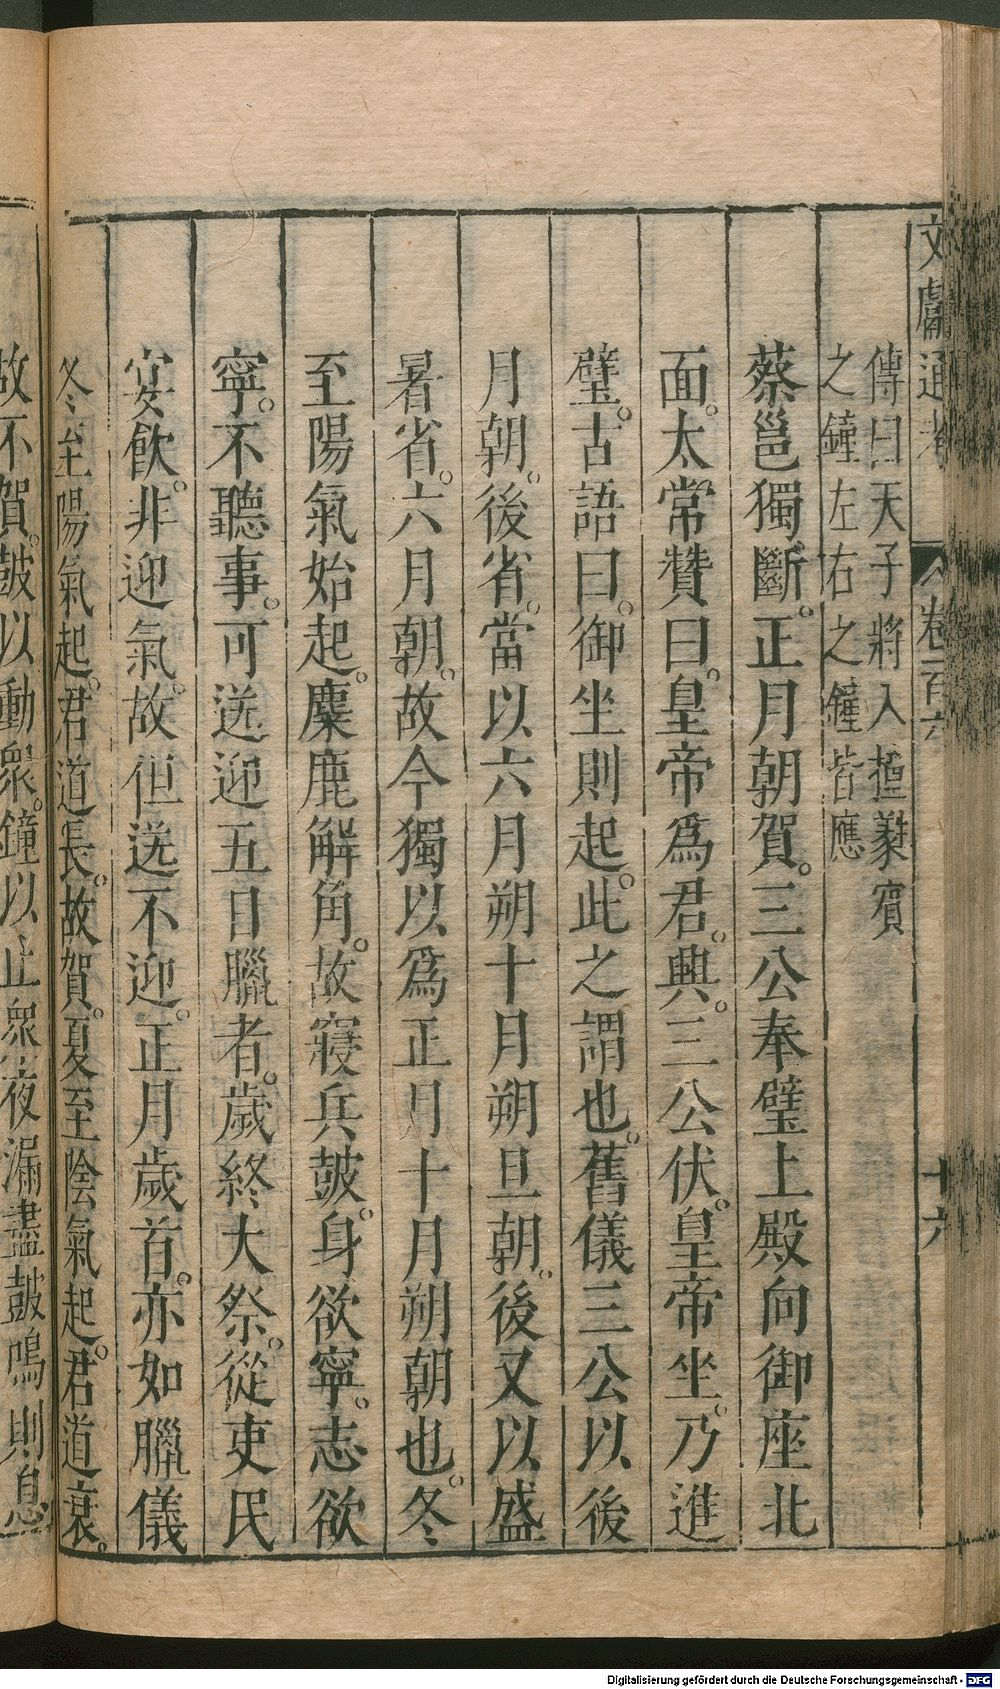 文獻通考 卷一百六 十六
傳曰天子將入撞蕤賓
之鐘左右之鐘皆應
蔡邕獨斷。正月朝賀。三公奉璧上殿向御座北
面。太常贊曰。皇帝爲君。興。三公伏。皇帝坐。乃進
璧。古語曰。御坐則起。此之謂也。舊儀三公以後
月朝。後省。當以六月朔十月朔旦朝。後又以盛
暑省。六月朝。故今獨以爲正月十月朔朝也。冬
至陽氣始起。麋鹿解角。故寢兵鼓。身欲寧。志欲
寧。不聽事。可送迎五日臘者。歲終大祭。從吏民
安飲。非迎氣。故但送不迎。正月歲首。亦如臘儀
冬至陽氣起。君道長。故賀。夏至陰氣起。君道衰。
故不賀。鼓以動衆。鐘以止衆夜漏盡鼓鳴則息
Digitalisierung gefördert durch die Deutsche Forschungsgemeinschaft - DFG